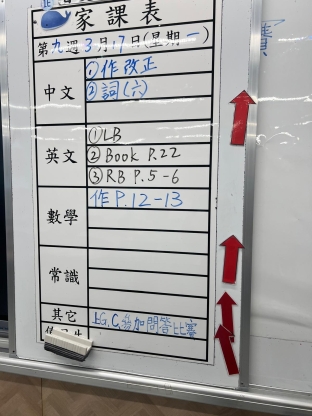 家課表
第九週3月17日(星期一)
中文
①作改正
②詞(六)
英文
①LB
②Book P.22
③RB P.5-6
數學
作P.12-13
常識
其它
上G.C.參加問答比賽